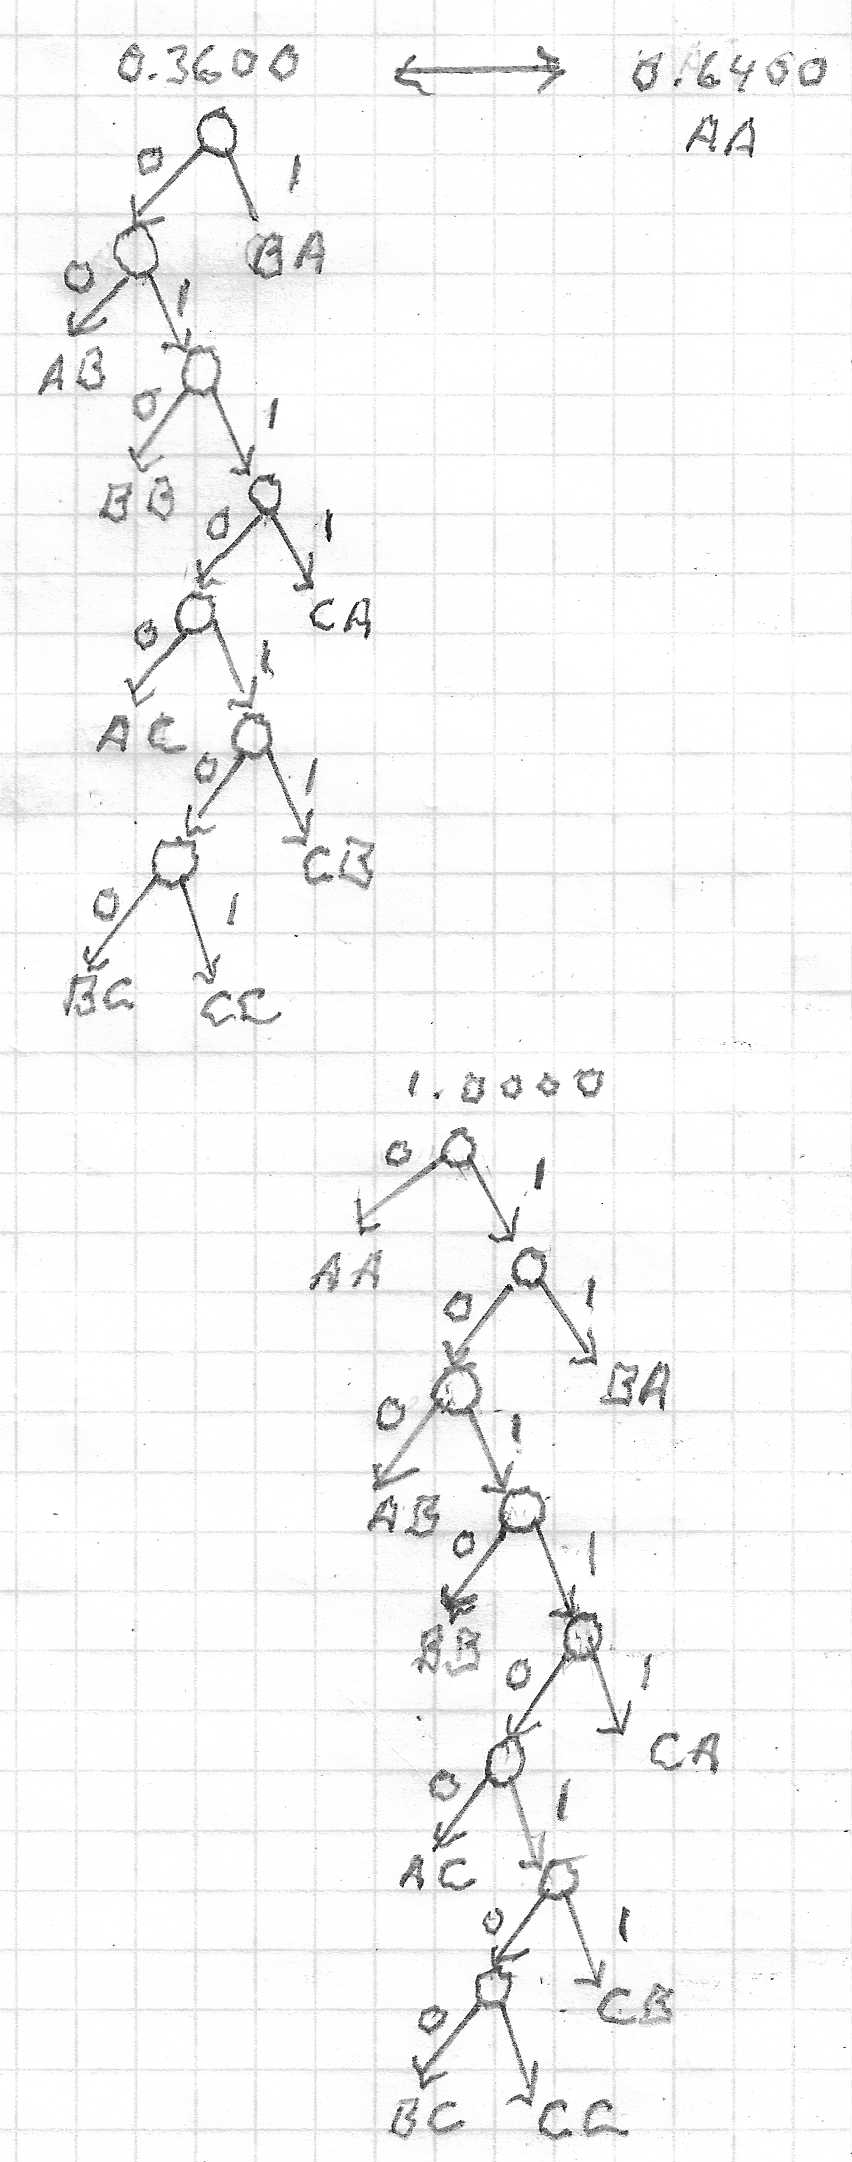 0.3600 0.6400
AA
0 1
BA
0 1
AB
0 1
BB
0 1
CA
0 1
AC
0 1
CB
0 1
BC CC
1.0000
0 1
AA
0 1
BA
0 1
AB
0 1
BB
0 1
CA
0 1
AC
0 1
CB
0
BC CC